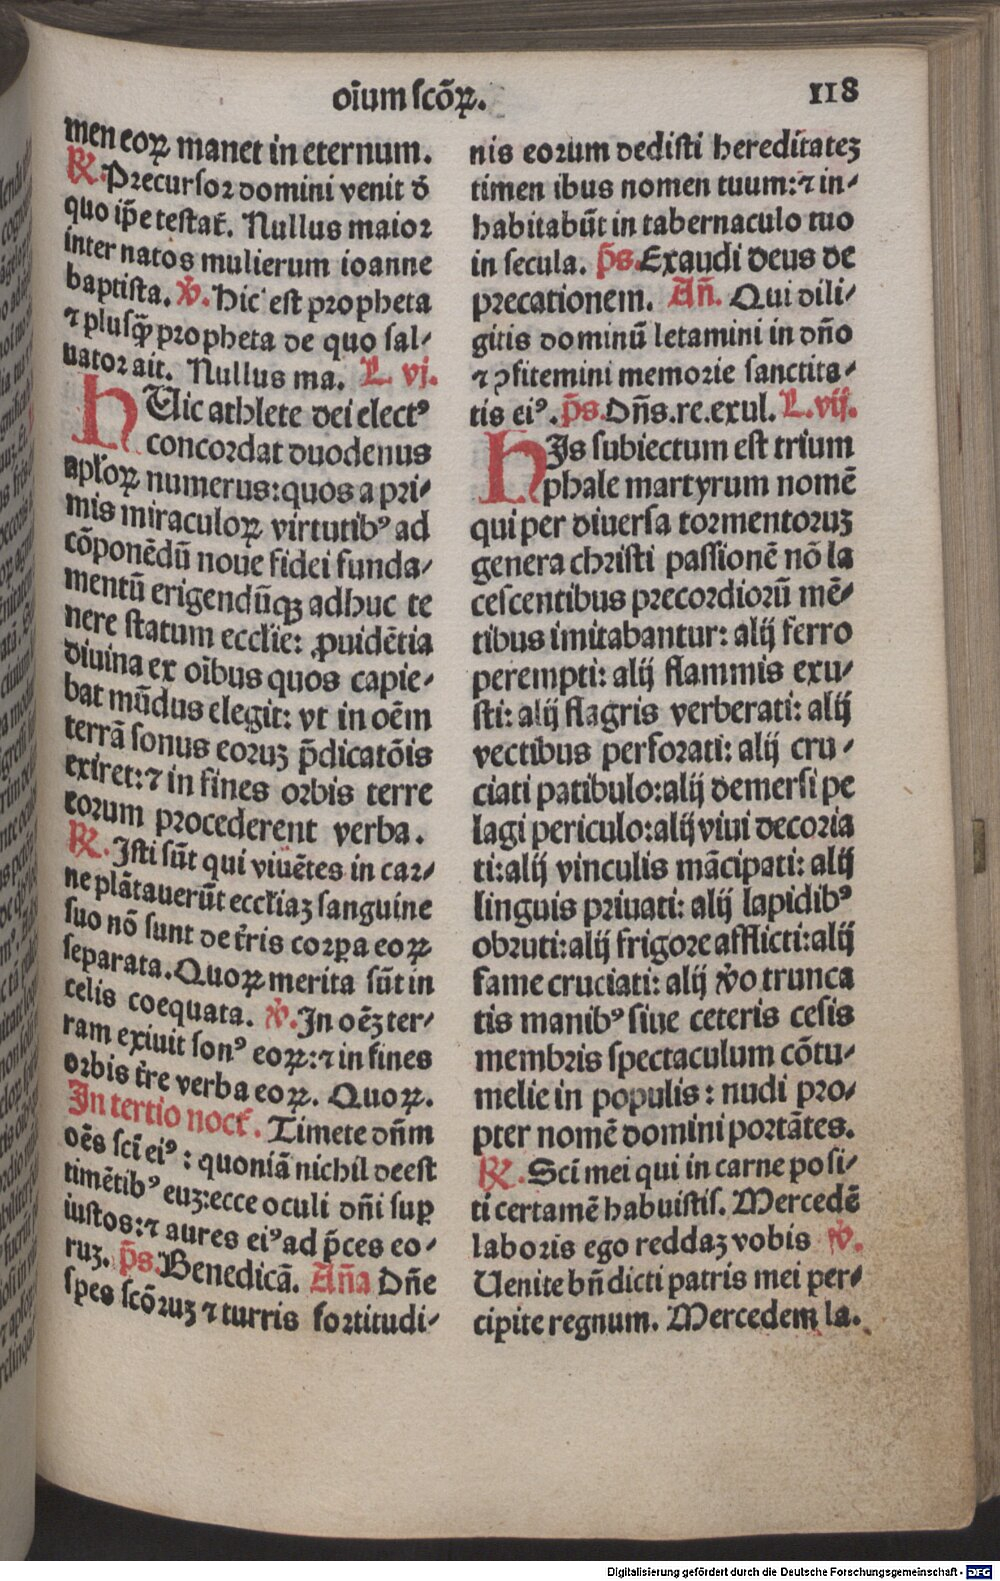 oīum scōꝝ.
118
men eoꝝ manet in eternum.
℟. Precursor domini venit d̄
quo ip̄e testat̄. Nullus maior
inter natos mulierum ioanne
baptista. ℣. Hic est propheta
⁊ plusq̄ꝫ propheta de quo sal⸗
uator ait. Nullus ma. L. vj.
HUic athlete dei electꝰ
concordat duodenus
apl'oꝝ numerus: quos a pri⸗
mis miraculoꝝ virtutibꝰ ad
cōponēdū noue fidei funda⸗
mentū erigendūqꝫ adhuc te
nere statum eccl'ie: ꝓuidētia
diuina ex oībus quos capie⸗
bat mūdus elegit: vt in oēm
terrā sonus eoruꝫ p̄dicatōis
exiret: ⁊ in fines orbis terre
eorum procederent verba.
℟. Isti sūt qui viuētes in car⸗
ne plātauerūt eccl'iaꝫ sanguine
suo nō sunt de t'ris corꝑa eoꝝ
separata. Quoꝝ merita sūt in
celis coequata. ℣. In oēꝫ ter⸗
ram exiuit sonꝰ eoꝝ: ⁊ in fines
orbis t're verba eoꝝ. Quoꝝ.
In tertio noct'. Timete dn̄m
oēs sct̄i eiꝰ: quoniā nichil deest
timētibꝰ euꝫ: ecce oculi dn̄i suꝑ
iustos: ⁊ aures eiꝰ ad p̄ces eo⸗
ruꝫ. p̄s. Benedicā. An̄a Dn̄e
spes scōruꝫ ⁊ turris fortitudi⸗
nis eorum dedisti hereditateꝫ
timen ibus nomen tuum: ⁊ in⸗
habitabūt in tabernaculo tuo
in secula. p̄s. Exaudi deus de
precationem. An̄. Qui dili⸗
gitis dominū letamini in dn̄o
⁊ ꝯfitemini memorie sanctita⸗
tis eiꝰ. p̄s. Dn̄s. re. exul. L. vij.
HIs subiectum est trium
phale martyrum nomē
qui per diuersa tormentoruꝫ
genera christi passionē nō la
cescentibus precordiorū mē⸗
tibus imitabantur: alij ferro
perempti: alij flammis exu⸗
sti: alij flagris verberati: alij
vectibus perforati: alij cru⸗
ciati patibulo: alij demersi pe
lagi periculo: alij viui decoria
ti: alij vinculis mācipati: alij
linguis priuati: alij lapidibꝰ
obruti: alij frigore afflicti: alij
fame cruciati: alij v̓o trunca
tis manibꝰ siue ceteris cesis
membris spectaculum cōtu⸗
melie in populis: nudi pro⸗
pter nomē domini portātes.
℟. Sct̄i mei qui in carne posi⸗
ti certamē habuistis. Mercedē
laboris ego reddaꝫ vobis ℣.
Uenite bn̄dicti patris mei per⸗
cipite regnum. Mercedem la.
Digitalisierung gefördert durch die Deutsche Forschungsgemeinschaft - DFG